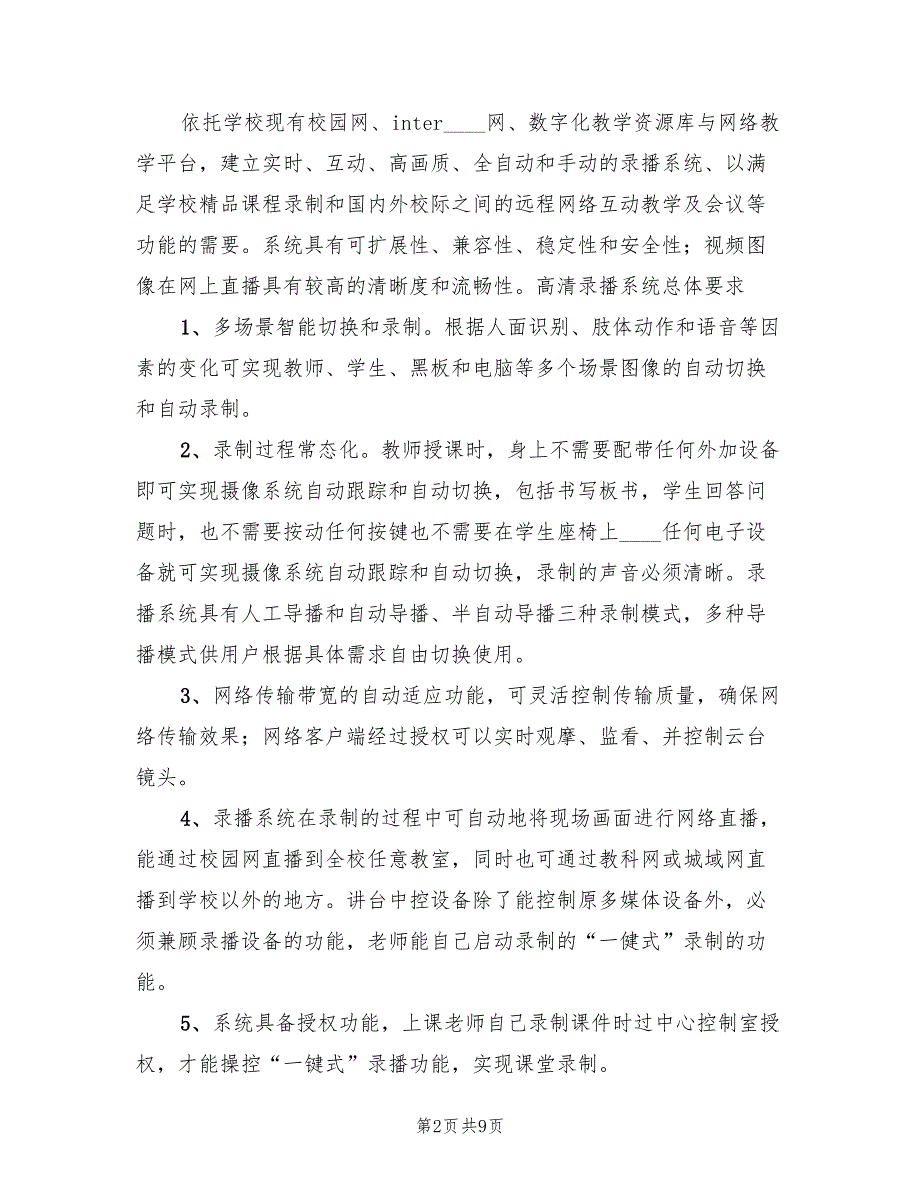 依托学校现有校园网、inter____网、数字化教学资源库与网络教
学平台，建立实时、互动、高画质、全自动和手动的录播系统、以满
足学校精品课程录制和国内外校际之间的远程网络互动教学及会议等
功能的需要。系统具有可扩展性、兼容性、稳定性和安全性；视频图
像在网上直播具有较高的清晰度和流畅性。高清录播系统总体要求
1、多场景智能切换和录制。根据人面识别、肢体动作和语音等因
素的变化可实现教师、学生、黑板和电脑等多个场景图像的自动切换
和自动录制。
2、录制过程常态化。教师授课时，身上不需要配带任何外加设备
即可实现摄像系统自动跟踪和自动切换，包括书写板书，学生回答问
题时，也不需要按动任何按键也不需要在学生座椅上____任何电子设
备就可实现摄像系统自动跟踪和自动切换，录制的声音必须清晰。录
播系统具有人工导播和自动导播、半自动导播三种录制模式，多种导
播模式供用户根据具体需求自由切换使用。
3、网络传输带宽的自动适应功能，可灵活控制传输质量，确保网
络传输效果；网络客户端经过授权可以实时观摩、监看、并控制云台
镜头。
4、录播系统在录制的过程中可自动地将现场画面进行网络直播，
能通过校园网直播到全校任意教室，同时也可通过教科网或城域网直
播到学校以外的地方。讲台中控设备除了能控制原多媒体设备外，必
须兼顾录播设备的功能，老师能自己启动录制的“一健式”录制的功
能。
5、系统具备授权功能，上课老师自己录制课件时过中心控制室授
权，才能操控“一键式”录播功能，实现课堂录制。
第2页 共9页